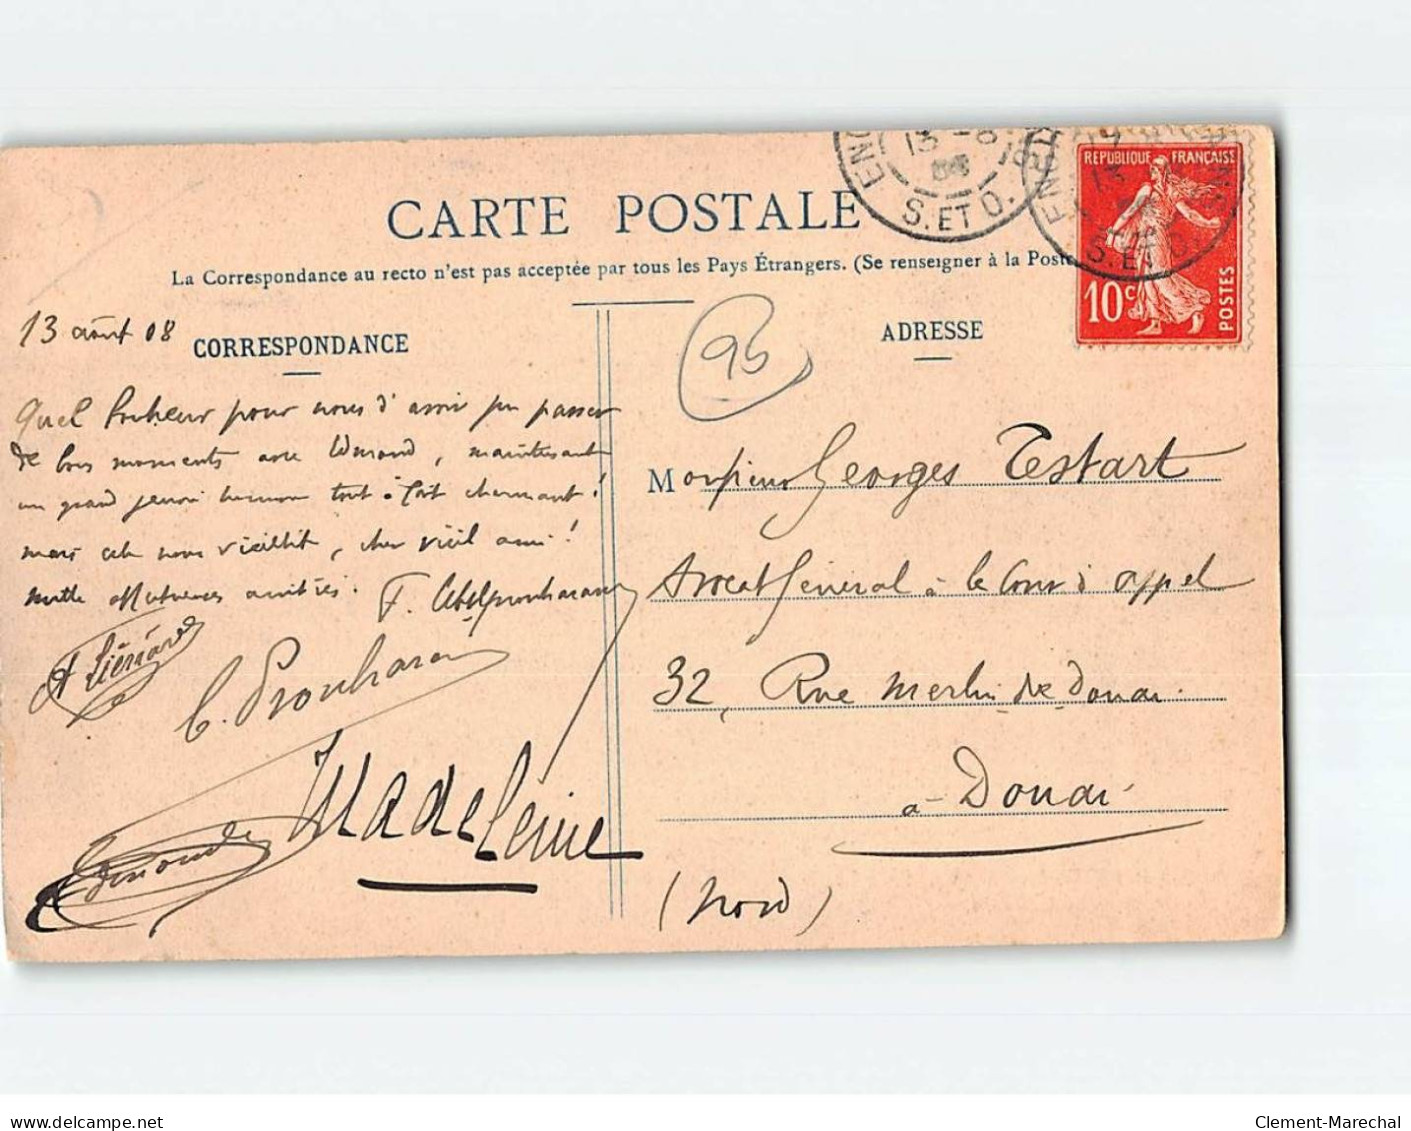 CARTE POSTALE
La Correspondance au recto n'est pas acceptée par tous les Pays Étrangers. (Se renseigner à la Poste
13 août 08
CORRESPONDANCE
Quel bonheur pour nous d'avoir pu passer
de bons moments avec Edmond, maintenant
un grand jeune homme tout à fait charmant!
mais cela nous vieillit, cher vieil ami!
mille affectueuses amitiés. F.
C. Prouharam
Madeleine
Edmond
ADRESSE
95
Monsieur Georges Testart
Avocat Général à la Cour d'appel
32, Rue Merlin de Douai
à Douai
(Nord)
13 -8
08
S. ET O.
S. ET O.
REPUBLIQUE FRANÇAISE
10c
POSTES
Clement-Marechal